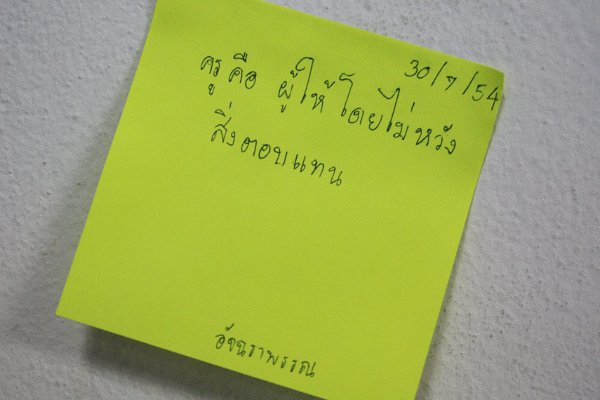 30/7/54
ครูคือ ผู้ให้โดยไม่หวัง
สิ่งตอบแทน
อัจฉราพรรณ